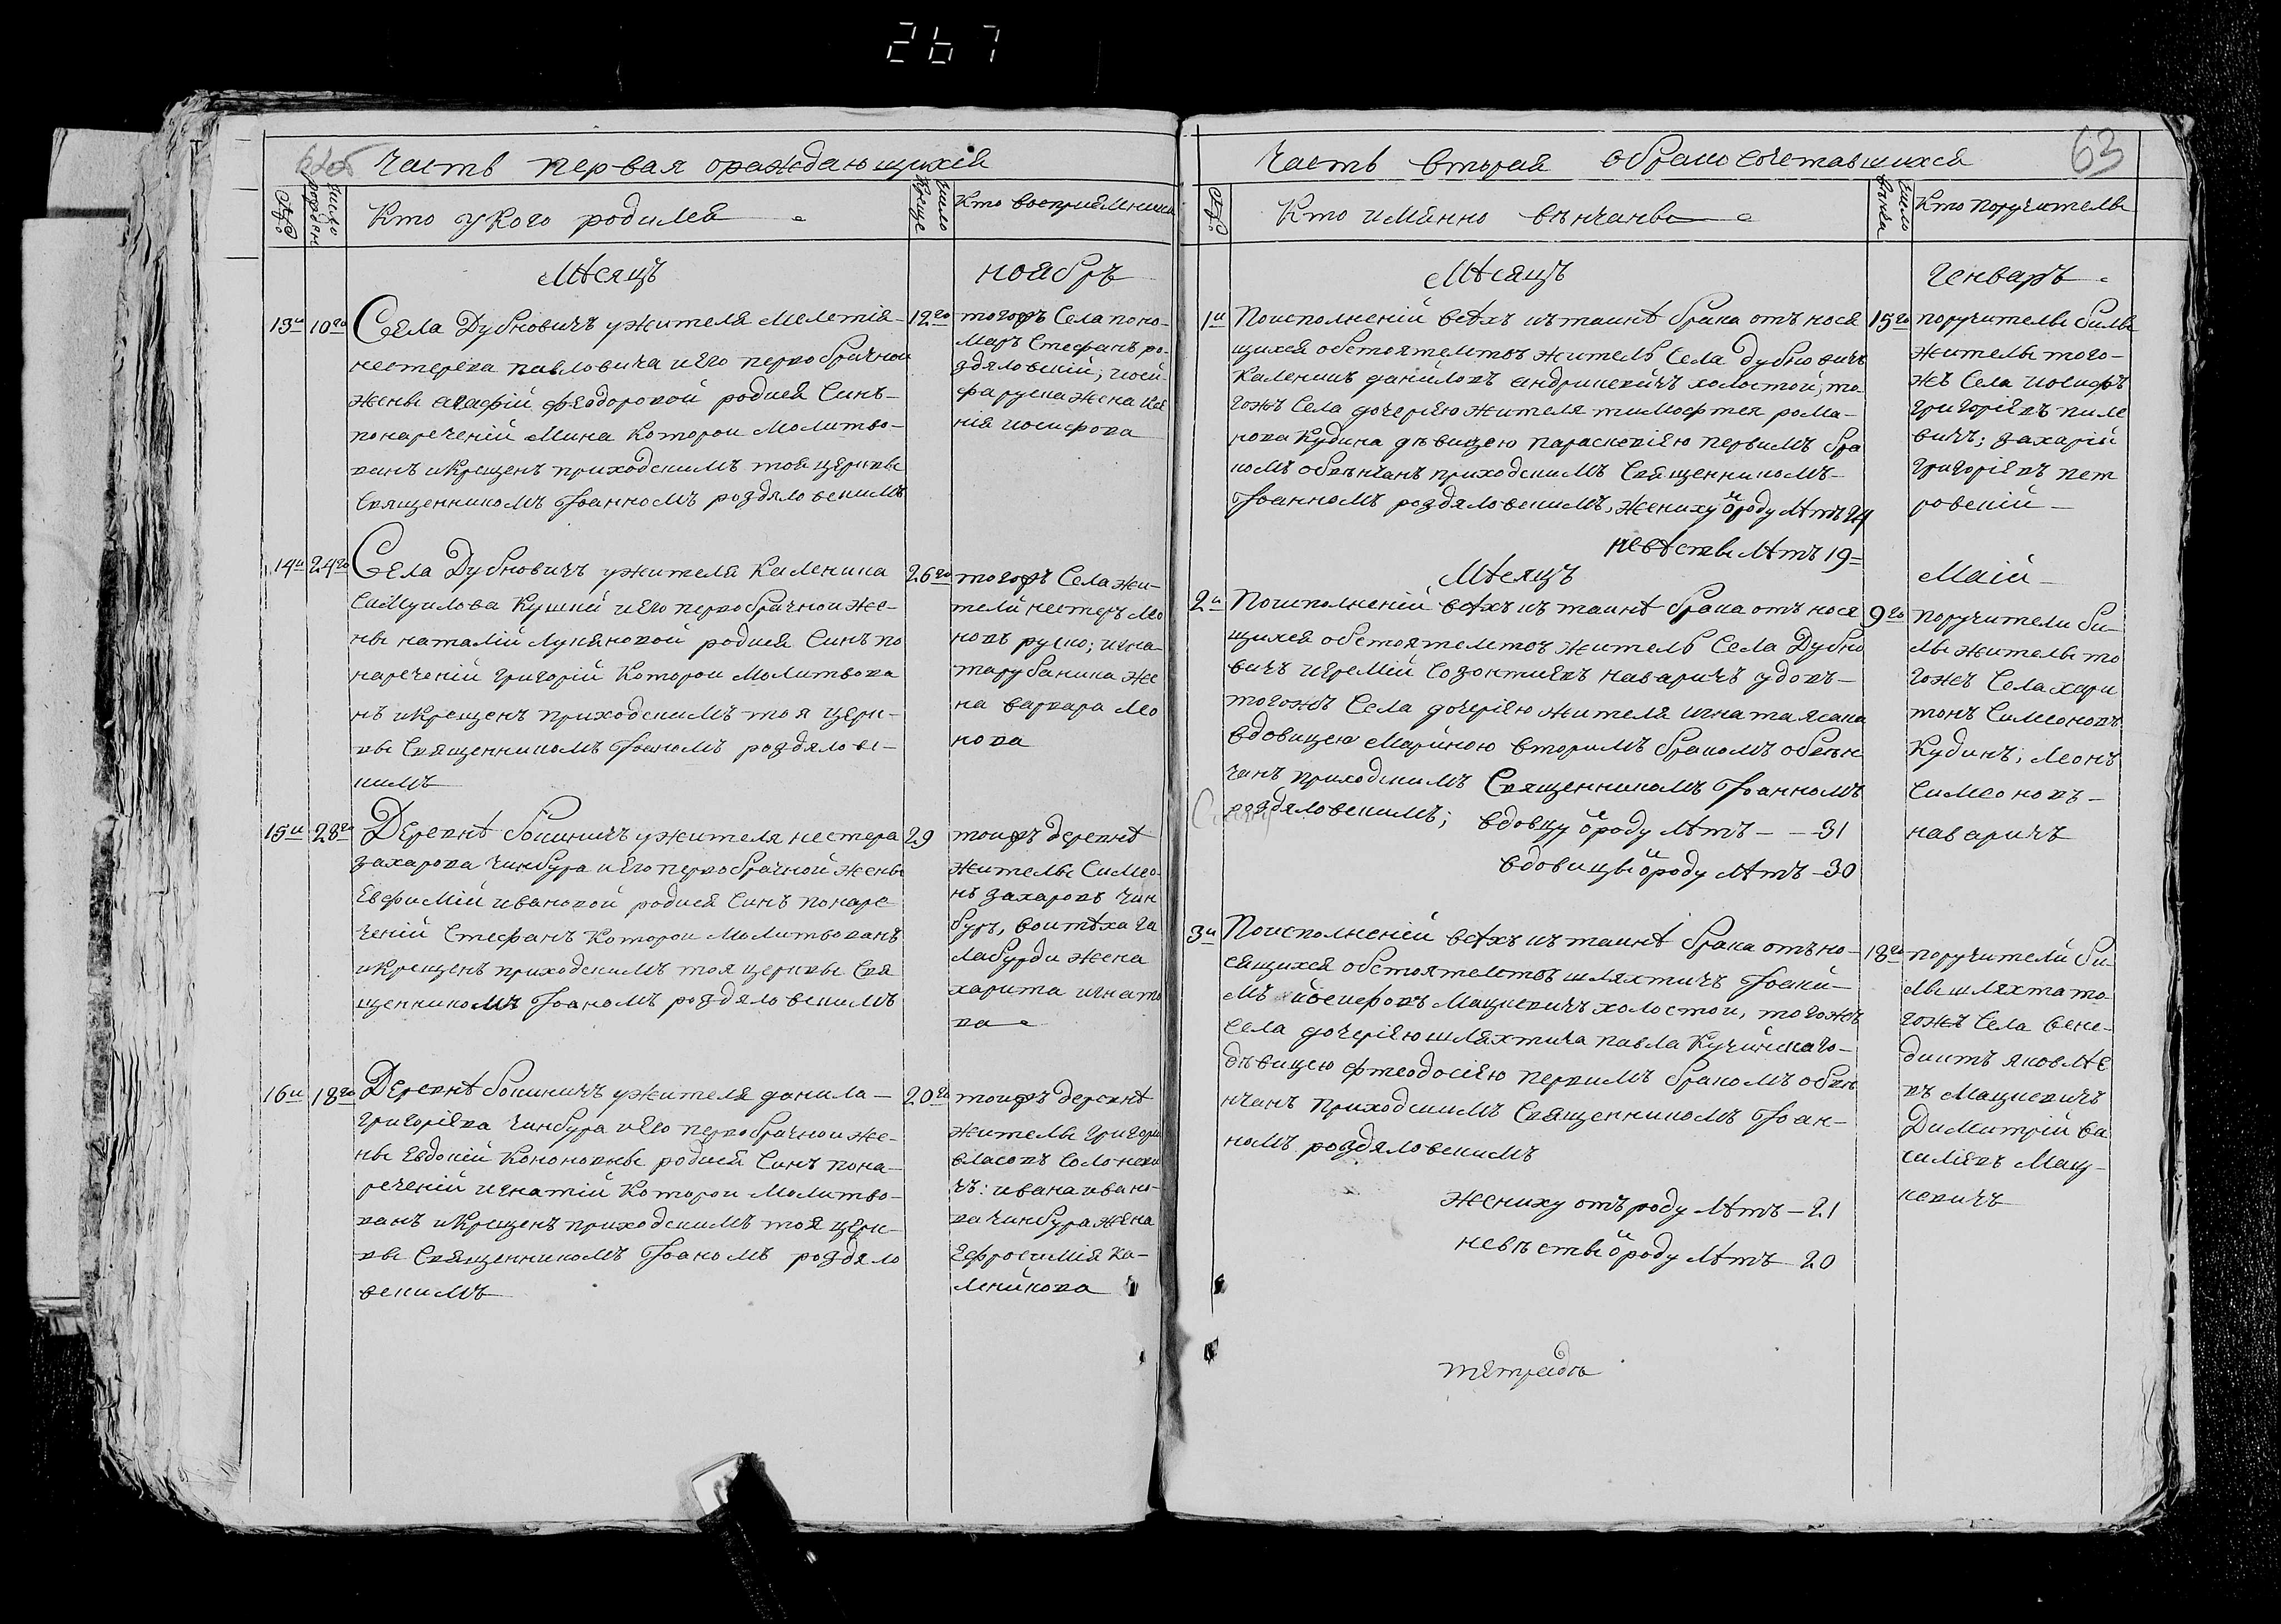 267
Часть первая ораждающихся
№
число рожден
Кто укого родился
число креще
Кто восприемники
Мѣсяцъ
ноябръ
13и 10го
Села Дубновичъ ужителя Мелетія
нестерева павловича иЕго первобрачнои
жены агафій федоровой родися Синъ
понареченій Мина Которои Молитво-
ванъ икрещенъ приходскимъ тоя церквы
Священникомъ Іоанномъ роздяловскимъ
12го
тогожъ Села поно-
марь Стефанъ ро-
здяловскій; иоси-
фа руска жена
нія иосифова
14и 24го
Села Дубновичъ ужителя Каленика
Самуилова Кушнй иЕго первобрачнои же-
ны наталій Лукяновой родися Синъ по
нареченій григорій Которои Молитвова
нъ икрещенъ приходскимъ тоя церк-
вы Священникомъ Іоаномъ роздяловс-
кимъ
26го
тогожъ Села жи-
тели нестеръ лео
новъ руско; игна-
та рубаника же
на варвара лео
нова
15и 28го
Деревнѣ бокиничъ ужителя нестера
захарова чинбура иЕго первобрачной жены
Евфимій ивановой родися Синъ понаре-
ченій Стефанъ Которои Молитвованъ
икрещенъ приходскимъ тоя церквы Свя
щенникомъ Іоаномъ роздяловскимъ
29
тоижъ деревнѣ
жителы Симео-
нъ захаровъ чин
буръ, воитѣха га
лабурди жена
харита игнато
ва
16и 18го
Деревнѣ бокиничъ ужителя данила
григоріева чинбура иЕго первобрачнои же-
ны Евдокій Кононовны родися Синъ пона-
реченій игнатій Которои Молитво-
ванъ икрещенъ приходскимъ тоя церк-
вы Священникомъ Іоаномъ роздяло
вскимъ
20го
тоижъ деревнѣ
жителы григори
власовъ Солоневи
чъ: ивана ивано-
ва чинбура жена
Ефросимія Ка-
леникова
63
Часть вторая обракосочетавшихся
№
Кто имянно вѣнчаны
число вѣнча
Кто поручителы
Мѣсяцъ
генваръ
1и
Поисполненій всѣхъ ктаинѣ брака относя
щихся обстоятелствъ жителъ Села Дубновичъ
Каленикъ даниловъ андрикевичъ холостой, то-
гожъ Села дочеріею жителя тимофтея рома-
нова Кудина дѣвицею параскевіею первымъ бра
комъ обвѣнчанъ приходскимъ Священникомъ
Іоанномъ роздяловскимъ, жениху ѿроду лѣтъ 24
невѣсты лѣтъ 19
15го
поручителы былы
жителы того-
жъ Села иосифъ
григоріевъ пиле
вичъ; захарій
григоріевъ пет
ровскій
Мѣсяцъ
Маій
2и
Поисполненій всѣхъ ктаинѣ брака относя
щихся обстоятелствъ жителъ Села Дубно
вичъ иеремій Созонтиевъ наваричъ удовъ
тогожъ Села дочеріею жителя игната
вдовицею Мариною вторимъ бракомъ обвѣн
чанъ приходскимъ Священникомъ Іоанномъ
роздяловскимъ; вдовцу ѿроду лѣтъ - - 31
вдовицы ѿроду лѣтъ - 30
9го
поручители би-
лы жителы то
гожъ Села хари
тонъ Симеоновъ
Кудинъ; леонъ
Симеоновъ
наваричъ
3и
Поисполненій всѣхъ ктаинѣ брака отъно-
сящихся обстоятелствъ шляхтичъ Іоаки-
мъ иосифовъ Мацкевичъ холостои, тогожъ
Села дочеріею шляхтича павла Кучинскаго
дѣвицею фтеодосіею первимъ бракомъ обвѣ
нчанъ приходскимъ Священникомъ Іоан-
номъ роздяловскимъ
жениху отъ роду лѣтъ - 21
невѣсты ѿроду лѣтъ 20
18го
поручители би-
лы шляхта то-
гожъ Села вене-
диктъ яковлѣ
въ Мацкевичъ
Димитрій Ва
силіевъ Мац-
кевичъ
тетрадь